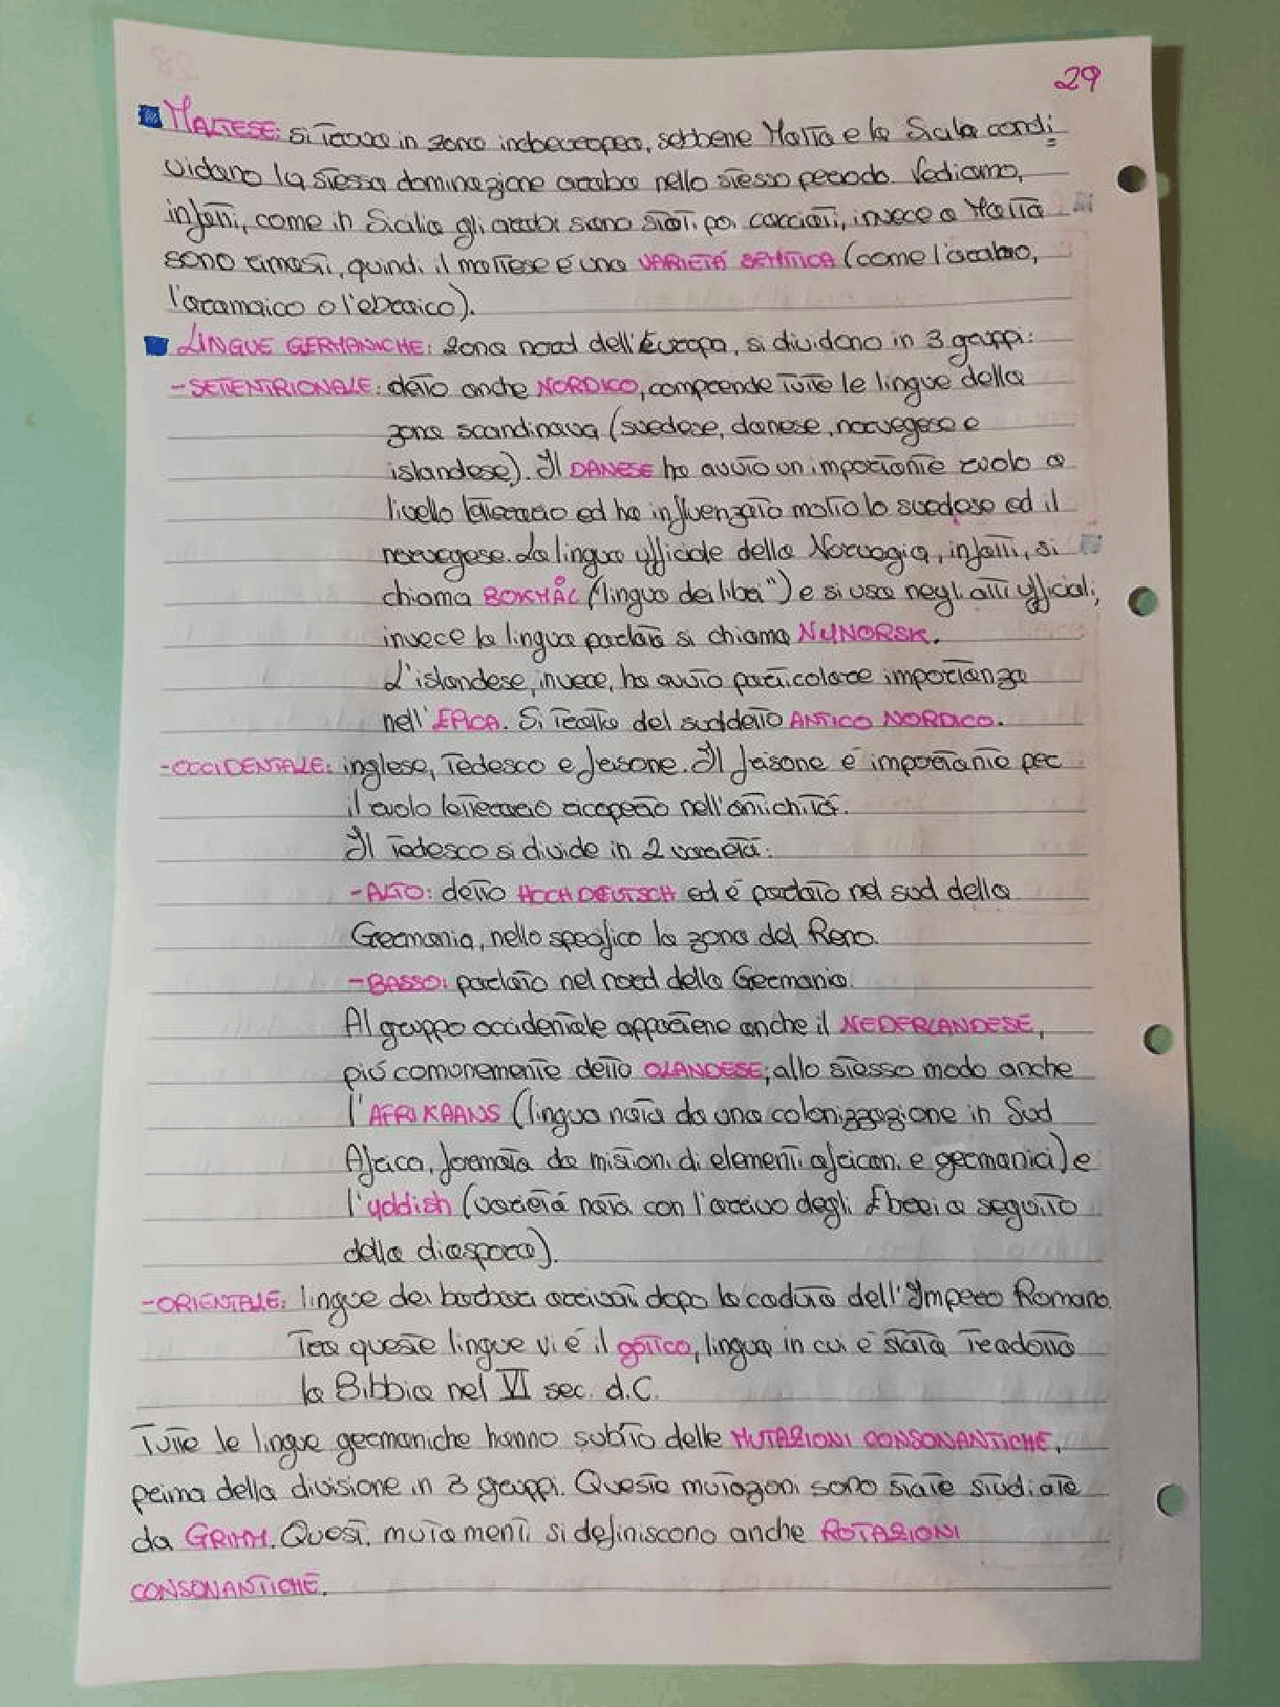 29
MALTESE: si trova in zona indoeuropea, sebbene Malta e la Sicilia condi
vidano la stessa dominazione araba nello stesso periodo. Vediamo,
infatti, come in Sicilia gli arabi siano stati poi cacciati, invece a Malta
sono rimasti, quindi il maltese é una VARIETÁ SEMITICA (come l'arabo,
l'aramaico o l'ebraico).
LINGUE GERMANICHE: zona nord dell'Europa, si dividono in 3 gruppi:
-SETTENTRIONALE: detto anche NORDICO, comprende tutte le lingue della
zona scandinava (svedese, danese, norvegese e
islandese). Il DANESE ha avuto un importante ruolo a
livello letterario ed ha influenzato molto lo svedese ed il
norvegese. La lingua ufficiale della Norvegia, infatti, si
chiama BOKMÅL ("lingua dei libri") e si usa negli atti ufficiali,
invece la lingua parlata si chiama NYNORSK.
L'islandese, invece, ha avuto particolare importanza
nell'EPICA. Si tratta del suddetto ANTICO NORDICO.
-OCCIDENTALE: inglese, tedesco e frisone. Il frisone é importante per
il ruolo letterario ricoperto nell'antichitá.
Il tedesco si divide in 2 varietá:
-ALTO: detto HOCH DEUTSCH ed é parlato nel sud della
Germania, nello specifico la zona del Reno.
-BASSO: parlato nel nord della Germania.
Al gruppo occidentale appartiene anche il NEDERLANDESE,
piú comunemente detto OLANDESE; allo stesso modo anche
l'AFRIKAANS (lingua nata da una colonizzazione in Sud
Africa, formata da mistioni di elementi africani e germanici) e
l'yddish (varietá nata con l'arrivo degli Ebrei a seguito
della diaspora).
-ORIENTALE: lingue dei barbari arrivati dopo la caduta dell'Impero Romano.
Tra queste lingue vi é il gotico, lingua in cui é stata tradotta
la Bibbia nel VI sec. d.C.
Tutte le lingue germaniche hanno subìto delle MUTAZIONI CONSONANTICHE,
prima della divisione in 3 gruppi. Queste mutazioni sono state studiate
da GRIMM. Questi mutamenti si definiscono anche ROTAZIONI
CONSONANTICHE.